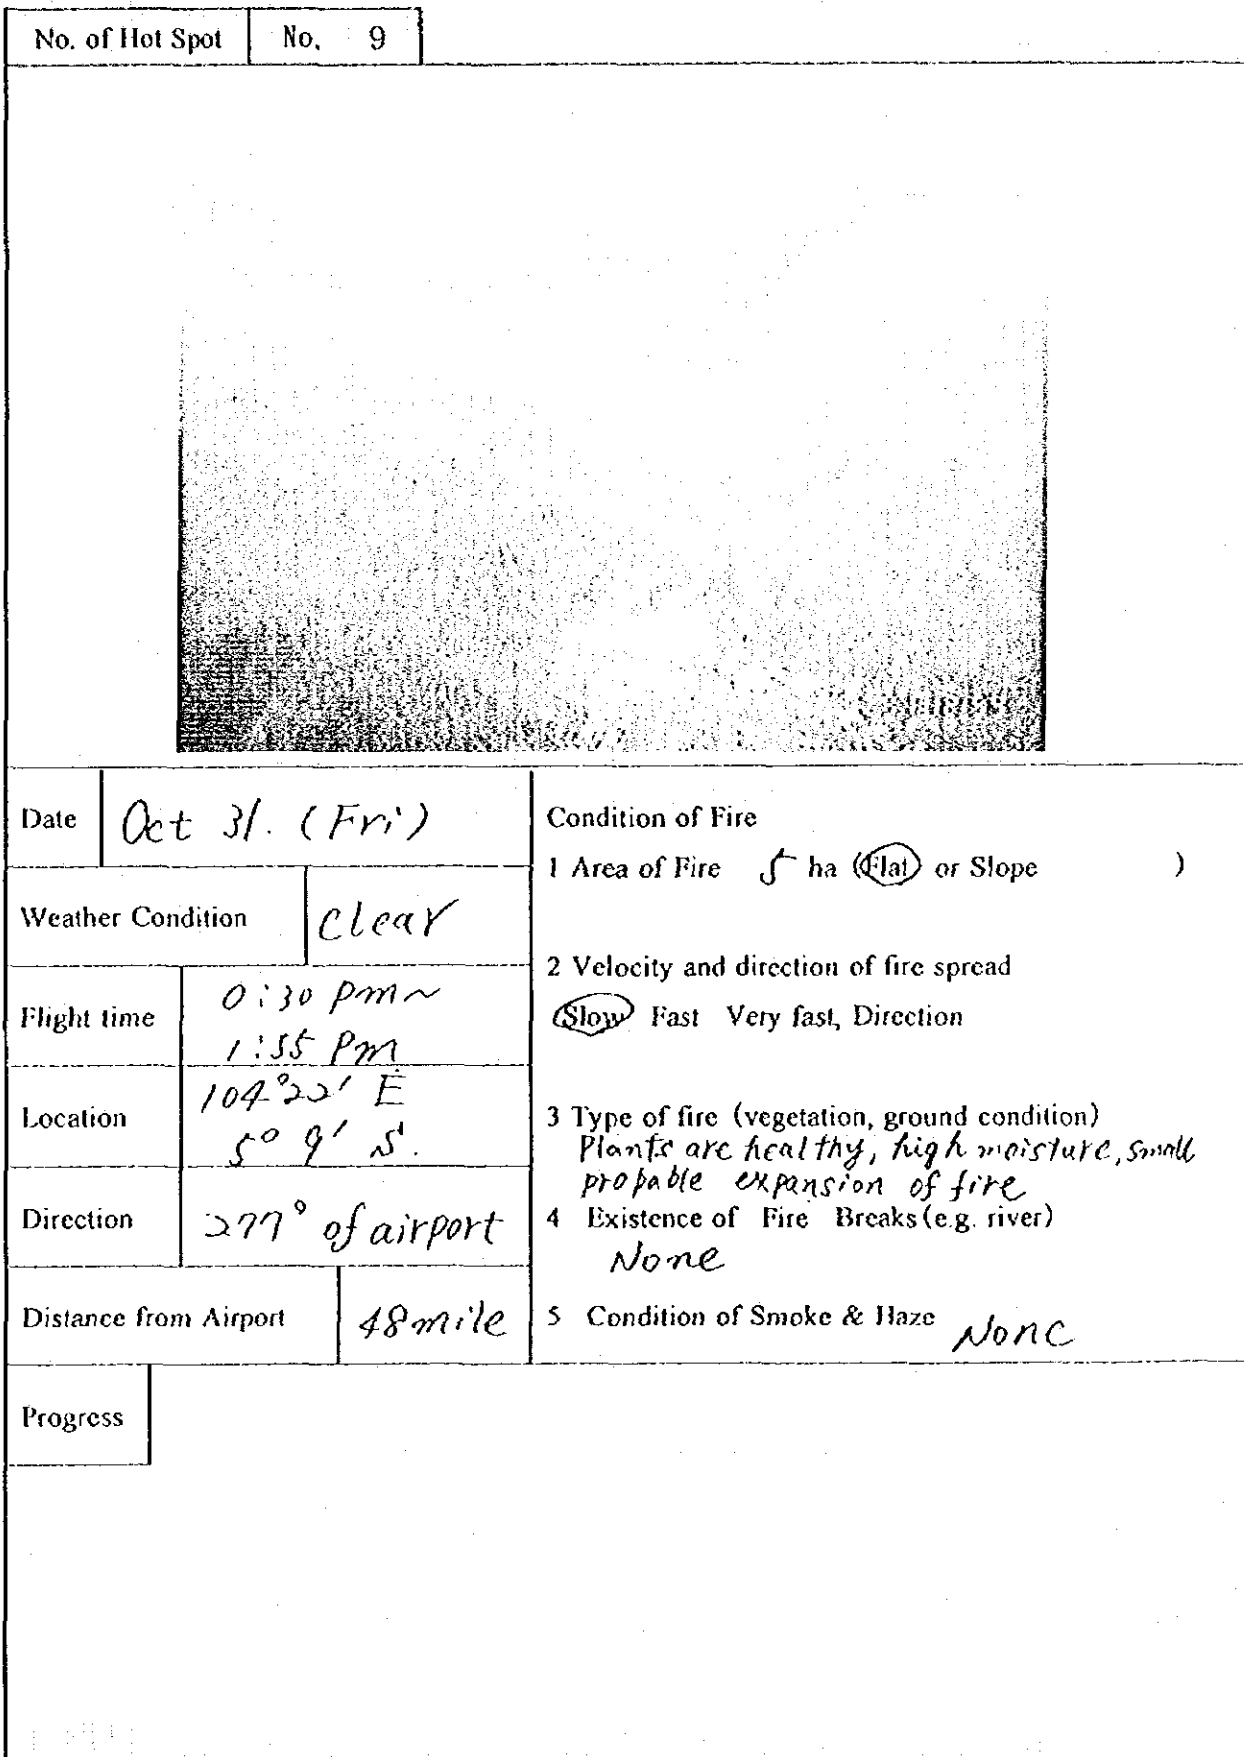 No. of Hot Spot No. 9
Date Oct 31. (Fri)
Weather Condition clear
Flight time 0:30 pm~
1:55 Pm
Location 104°22' E
5° 9' S.
Direction 277° of airport
Distance from Airport 48mile
Condition of Fire
1 Area of Fire 5 ha (Flat or Slope )
2 Velocity and direction of fire spread
Slow Fast Very fast, Direction
3 Type of fire (vegetation, ground condition)
Plants are healthy, high moisture, small
propable expansion of fire
4 Existence of Fire Breaks (e.g. river)
None
5 Condition of Smoke & Haze None
Progress